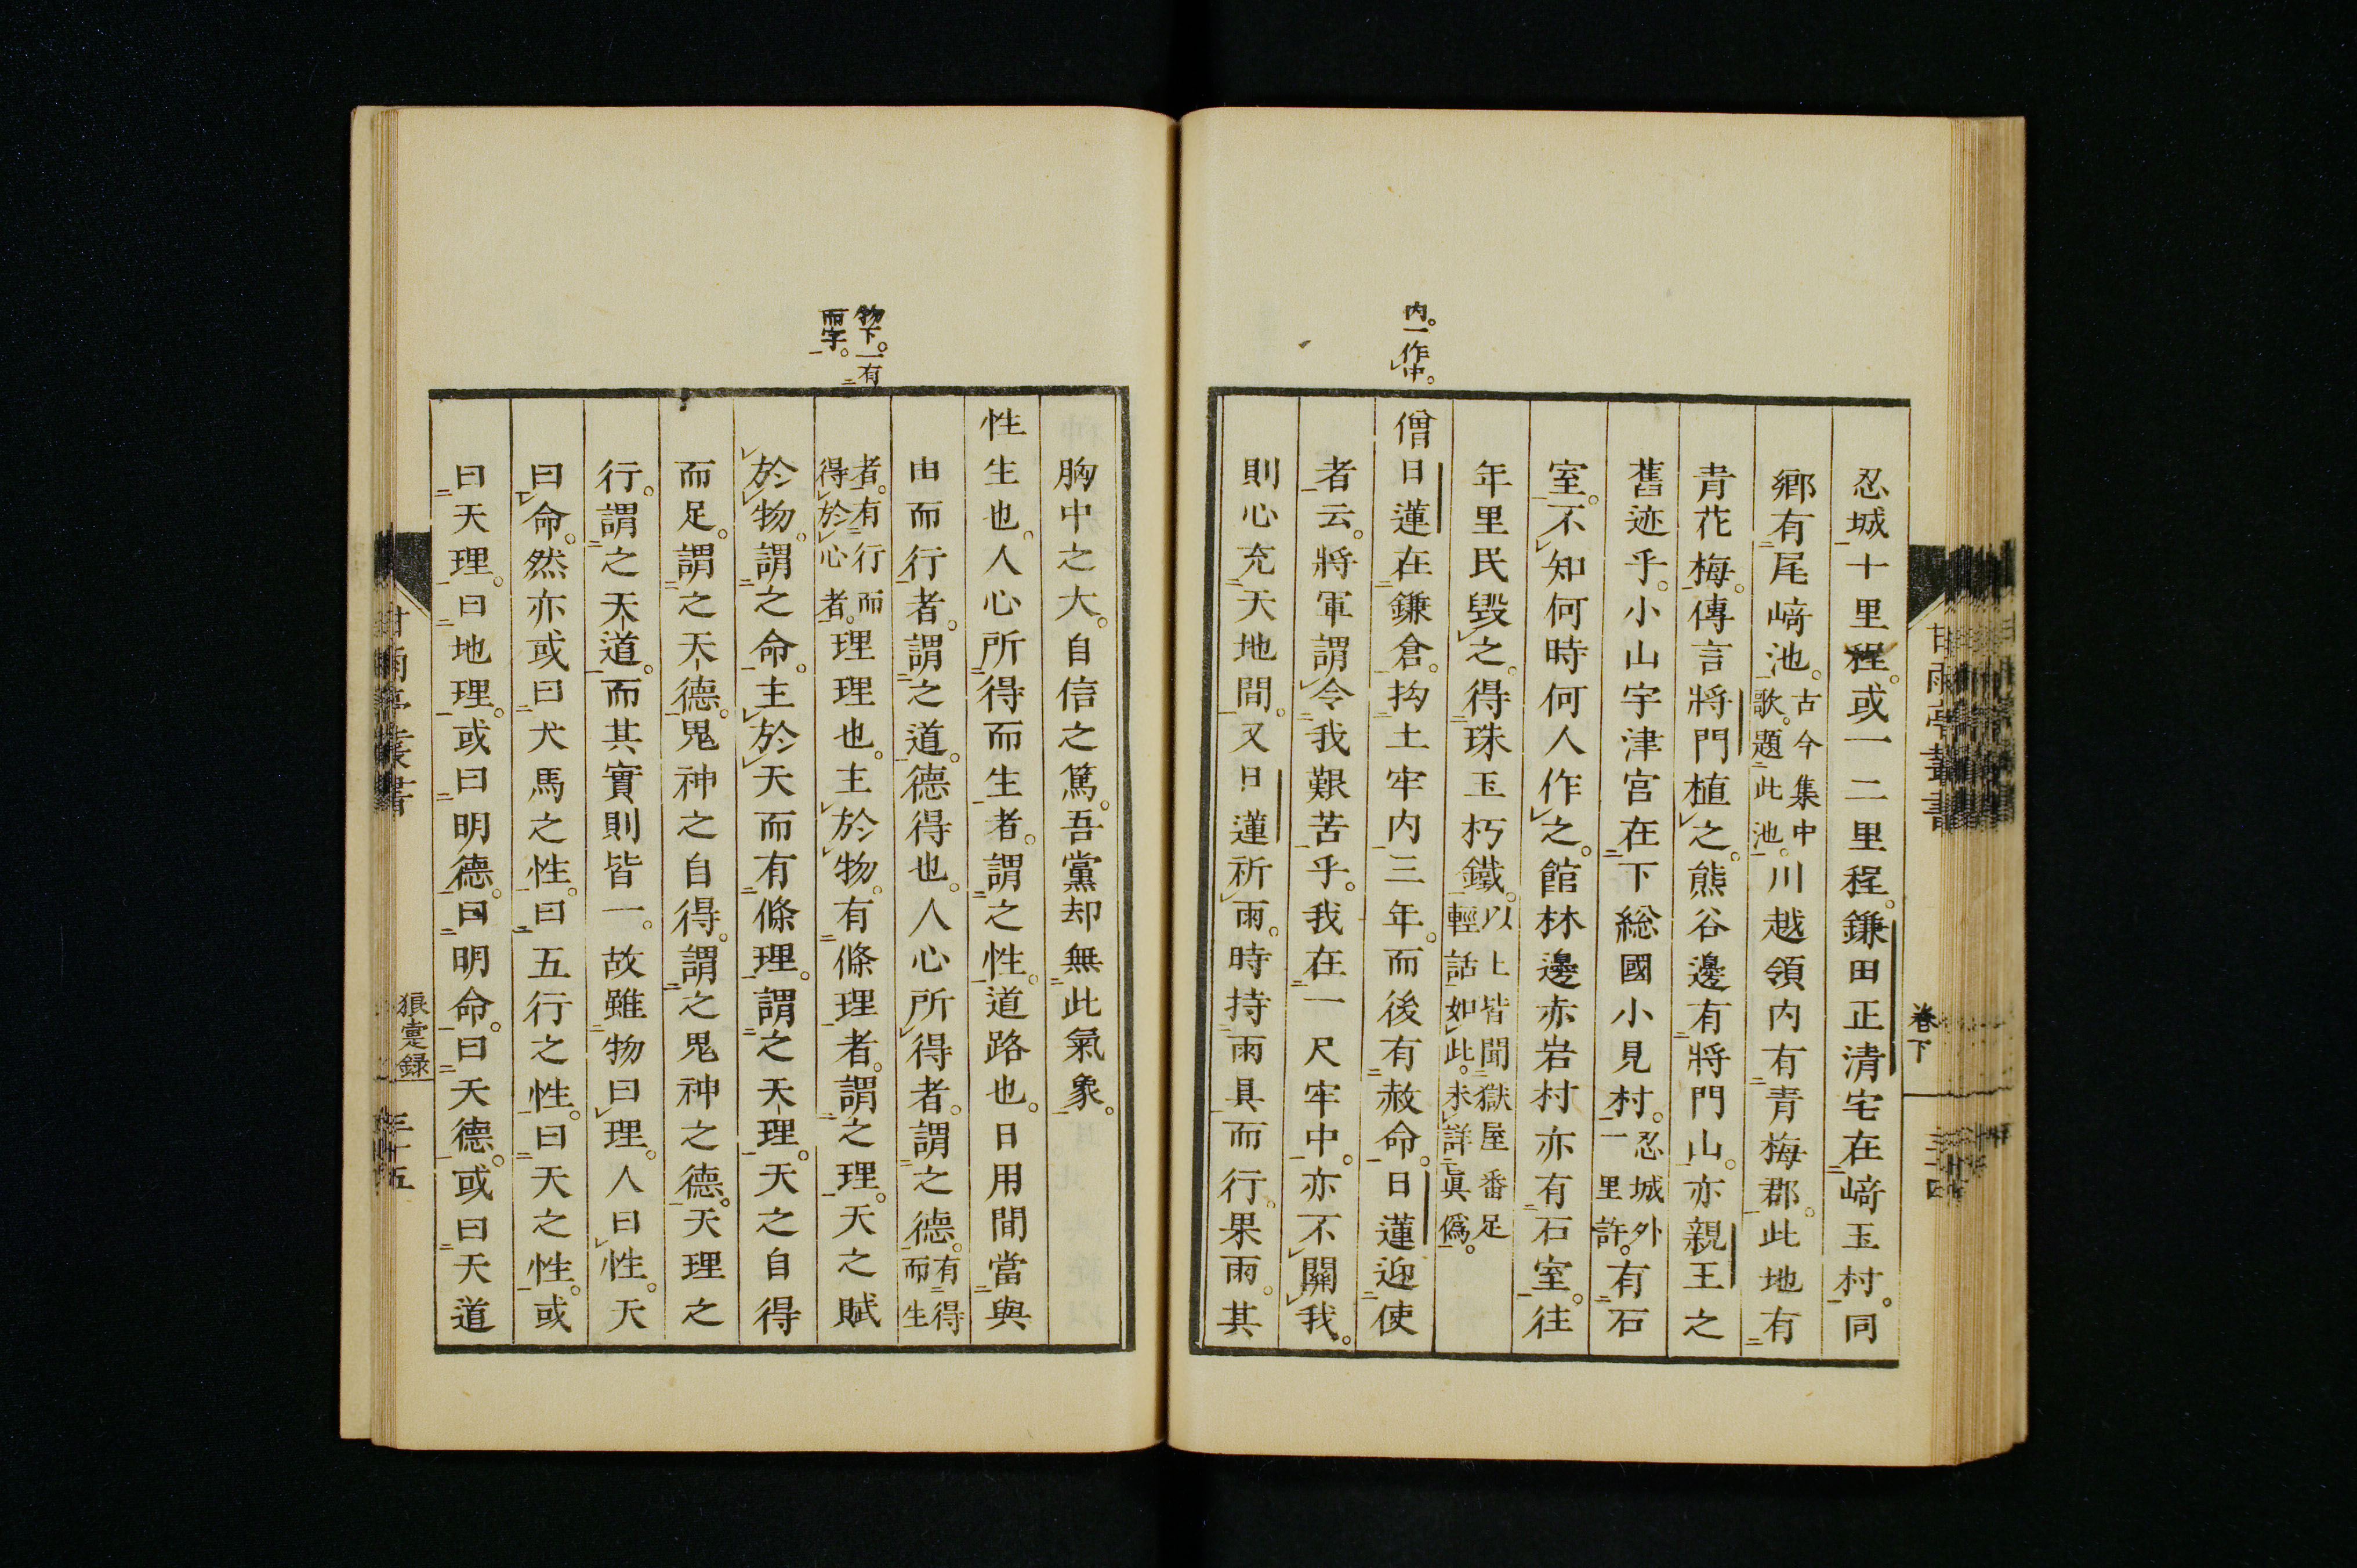 内。一作中。
忍城十里程。或一二里程。鎌田正清宅在﨑玉村。同
鄉有尾﨑池。古今集中歌。題此池。川越領内有青梅郡。此地有
青花梅。傳言將門植之。熊谷邊有將門山。亦親王之
舊迹乎。小山宇津宮在下総國小見村。忍城外一里許。有石
室。不知何時何人作之。館林邊赤岩村亦有石室。往
年里民毀之。得珠玉朽鐵。以上皆聞獄屋番足輕話如此。未詳眞僞。
僧日蓮在鎌倉。拘土牢内三年。而後有赦命。日蓮迎使
者云。將軍謂令我艱苦乎。我在一尺牢中。亦不關我。
則心充天地間。又日蓮祈雨。時持雨具而行。果雨。其
甘雨亭叢書
卷下
物下。一有
而字。
胸中之大。自信之篤。吾黨却無此氣象。
性生也。人心所得而生者。謂之性。道路也。日用間當與
由而行者。謂之道。德得也。人心所得者。謂之德。有得而生
者。有行而得於心者。理理也。主於物。有條理者。謂之理。天之賦
於物。謂之命。主於天而有條理。謂之天理。天之自得
而足。謂之天德。鬼神之自得。謂之鬼神之德。天理之
行。謂之天道。而其實則皆一。故雖物曰理。人曰性。天
曰命。然亦或曰犬馬之性。曰五行之性。曰天之性。或
曰天理。曰地理。或曰明德。曰明命。曰天德。或曰天道
狼疐録